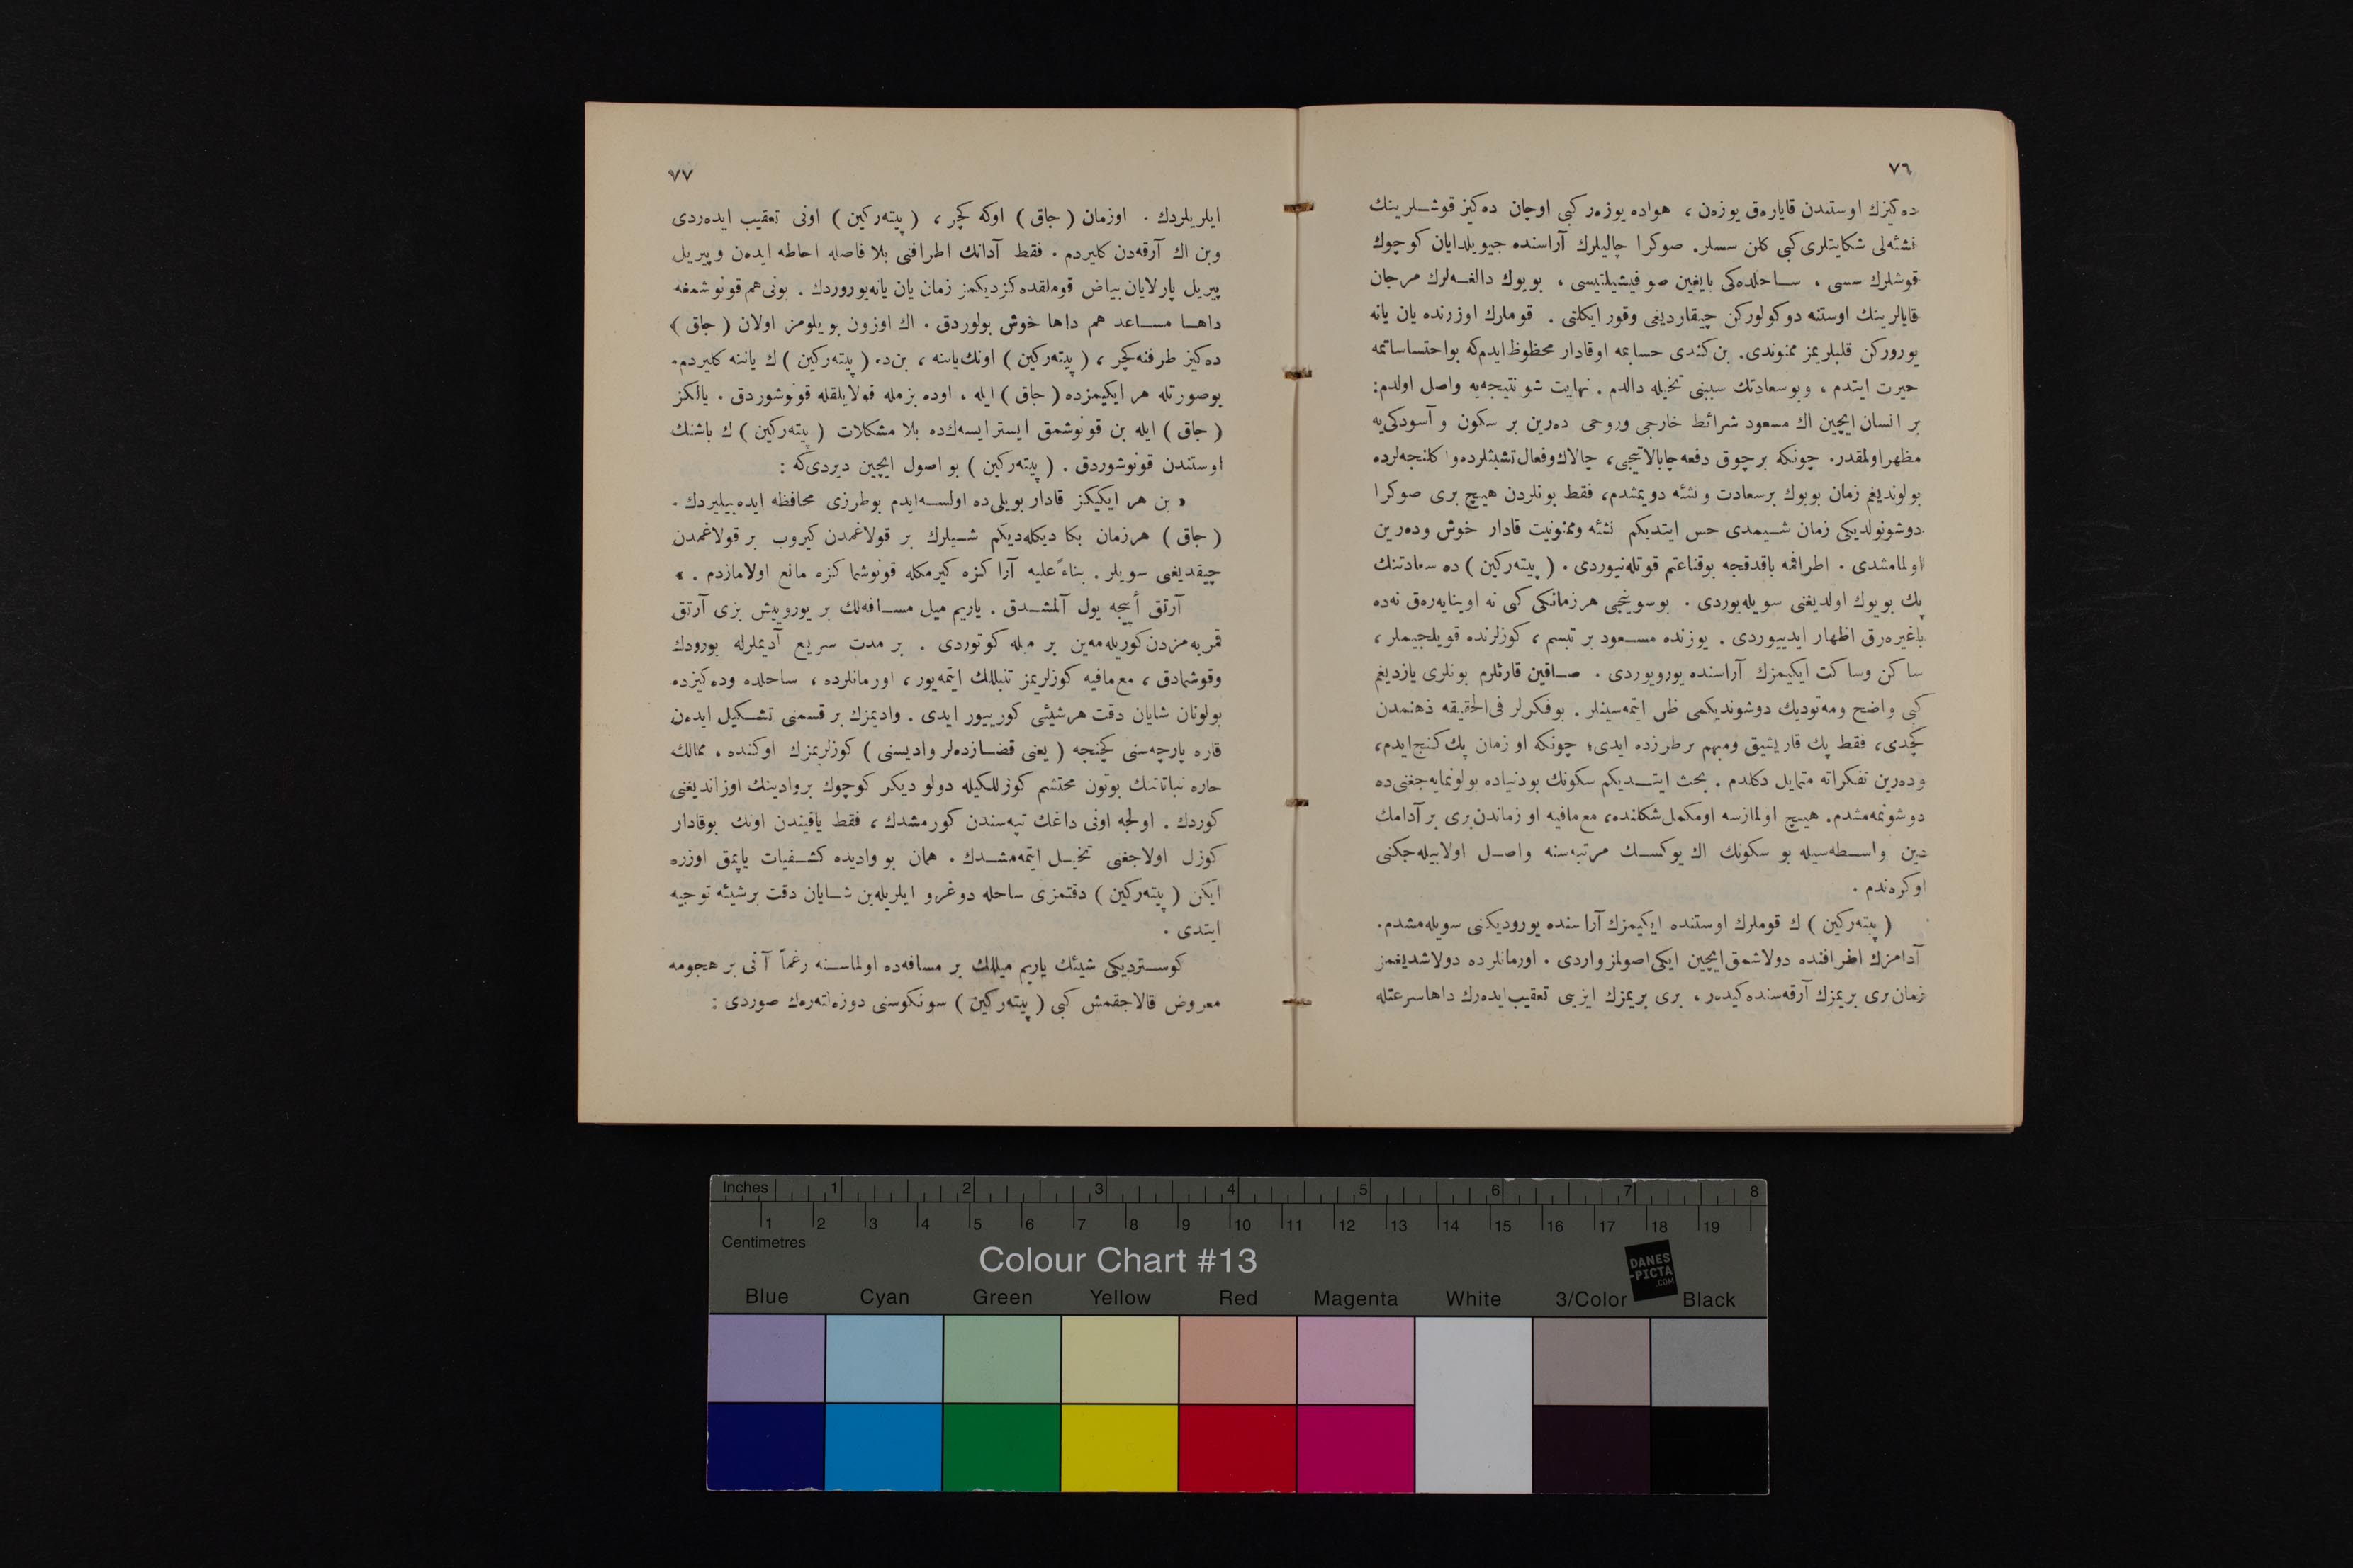 ٧٦
ده‌كیزك اوستندن قایارەق یوزەن ، هواده یوزەر كبی اوچان ده‌كیز قوشلرینك
نشئەلی شكایتلری كبی كلن سسلر. صوكرا چالیلرك آراسنده جیویلدایان كوچوك
قوشلرك سسی ، ساحلده‌كی بایغین صو فیشیلتیسی ، بویوك دالغەلرك مرجان
قایالرینك اوستنه دوكولوركن چیقاردیغی وقور ایكلتی . قوملرك اوزرنده یان یانه
یوروركن قلبلریمز ممنوندی. بن كندی حسابمه اوقادار محظوظ ایدم‌كه بواحتساساتمه
حیرت ایتدم ، وبوسعادتك سببنی تخیله دالدم . نهایت شو نتیجه‌یه واصل اولدم:
بر انسان ایچین اك مسعود شرائط خارجی وروحی ده‌رین بر سكون و آسوده‌كی‌یه
مظهر اولمقدر. چونكه برچوق دفعه چابالاتیجی، چالاك وفعال تشبثلرده و اكلنجه‌لرده
بولوندیغم زمان بویوك برسعادت و نشئه دویمشدم، فقط بونلردن هیچ بری صوكرا
دوشونولدیكی زمان شیمدی حس ایتدیكم نشئه وممنونیت قادار خوش وده‌رین
اولمامشدی . اطرافمه باقدقجه بوقناعتم قوتله‌نیوردی . ( پیته‌ركین ) ده سعادتنك
پك بویوك اولدیغنی سویله‌یوردی . بوسوینجی هرزمانكی كبی نه اوینایه‌رەق نه‌ده
باغیرەرق اظهار ایدییوردی . یوزنده مسعود بر تبسم ، كوزلرنده قویلجیملر ،
ساكن وساكت ایكیمزك آراسنده یورویوردی . صاقین قارئلرم بونلری یازدیغم
كبی واضح ومه‌تودیك دوشوندیكمی ظن ایتمه‌سینلر . بوفكرلر فی‌الحقیقه ذهنمدن
كچدی، فقط پك قاریشیق ومبهم برطرزده ایدی؛ چونكه او زمان پك كنج ایدم،
وده‌رین تفكراته متمایل دكلدم . بحث ایتدیكم سكونك بودنیاده بولونمایه‌جغنی ده
دوشونمه‌مشدم. هیچ اولمازسه اومكمل شكلنده، مع‌مافیه او زماندن‌بری بر آدامك
دین واسطه‌سیله بو سكونك اك یوكسك مرتبه‌سنه واصل اولابیله‌جكنی
اوكره‌ندم .
( پیته‌ركین ) ك قوملرك اوستنده ایكیمزك آراسنده یورودیكنی سویله‌مشدم.
آدامزك اطرافنده دولاشمق ایچین ایكی اصولمز واردی . اورمانلرده دولاشدیغمز
زمان بری بریمزك آرقه‌سنده كیدەر ، بری بریمزك ایزینی تعقیب ایده‌رك داها سرعتله
٧٧
ایلریلردك . اوزمان ( جاق ) اوكه كچر ، ( پیته‌ركین ) اونی تعقیب ایده‌ردی
وبن اك آرقه‌دن كلیردم . فقط آدانك اطرافنی بلا فاصله احاطه ایده‌ن و پیریل
پیریل پارلایان بیاض قوملقده كزدیكمز زمان یان یانه یوروردك . بونی هم قونوشمغه
داها مساعد هم داها خوش بولوردق . اك اوزون بویلومز اولان ( جاق )
ده‌كیز طرفنه كچر ، ( پیته‌ركین ) اونك یاننه ، بن‌ده ( پیته‌ركین ) ك یاننه كلیردم.
بوصورتله هر ایكیمزده ( جاق ) ایله ، اوده بزمله قولایلقله قونوشوردق . یالكز
( جاق ) ایله بن قونوشمق ایستر ایسه‌ك‌ده بلا مشكلات ( پیته‌ركین ) ك باشنك
اوستندن قونوشوردق . ( پیته‌ركین ) بو اصول ایچین دیردی‌كه :
« بن هر ایكیكز قادار بویلی‌ده اولسه‌ایدم بوطرزی محافظه ایده‌بیلیردك .
( جاق ) هرزمان بكا دیكله‌دیكم شیلرك بر قولاغمدن كیروب بر قولاغمدن
چیقدیغنی سویلر . بناءً علیه آرا كزه كیرمكله قونوشما كزه مانع اولامازدم . »
آرتق أییجه یول آلمشدق . یاریم میل مسافه‌لك بر یورویش بزی آرتق
قمریه‌مزدن كوریله‌مه‌ین بر محله كوتوردی . بر مدت سریع آدیملرله یورودك
وقوشمادق ، مع‌مافیه كوزلریمز تنبللك ایتمه‌یور ، اورمانلرده ، ساحلده وده‌كیزده
بولونان شایان دقت هرشیئی كورییور ایدی . وادیمزك بر قسمنی تشكیل ایده‌ن
قاره پارچه‌سنی كچنجه ( یعنی قضازده‌لر وادیسنی ) كوزلریمزك اوكنده ، ممالك
حاره نباتاتنك بوتون محتشم كوزللكیله دولو دیكر كوچوك بروادینك اوزاندیغنی
كوردك . اولجه اونی داغك تپه‌سندن كورمشدك ، فقط یاقیندن اونك بوقادار
كوزل اولاجغنی تخیل ایتمه‌مشدك . همان بو وادیده كشفیات یاپمق اوزره
ایكن ( پیته‌ركین ) دقتمزی ساحله دوغرو ایلریله‌ین شایان دقت برشیئه توجیه
ایتدی .
كوستردیكی شیئك یاریم میللك بر مسافه‌ده اولماسنه رغماً آنی بر هجومه
معروض قالاجقمش كبی ( پیته‌ركین ) سونكوسنی دوزه‌لته‌رەك صوردی :
Inches 1 2 3 4 5 6 7 8
1 2 3 4 5 6 7 8 9 10 11 12 13 14 15 16 17 18 19
Centimetres
Colour Chart #13
DANES
-PICTA
.COM
Blue Cyan Green Yellow Red Magenta White 3/Color Black